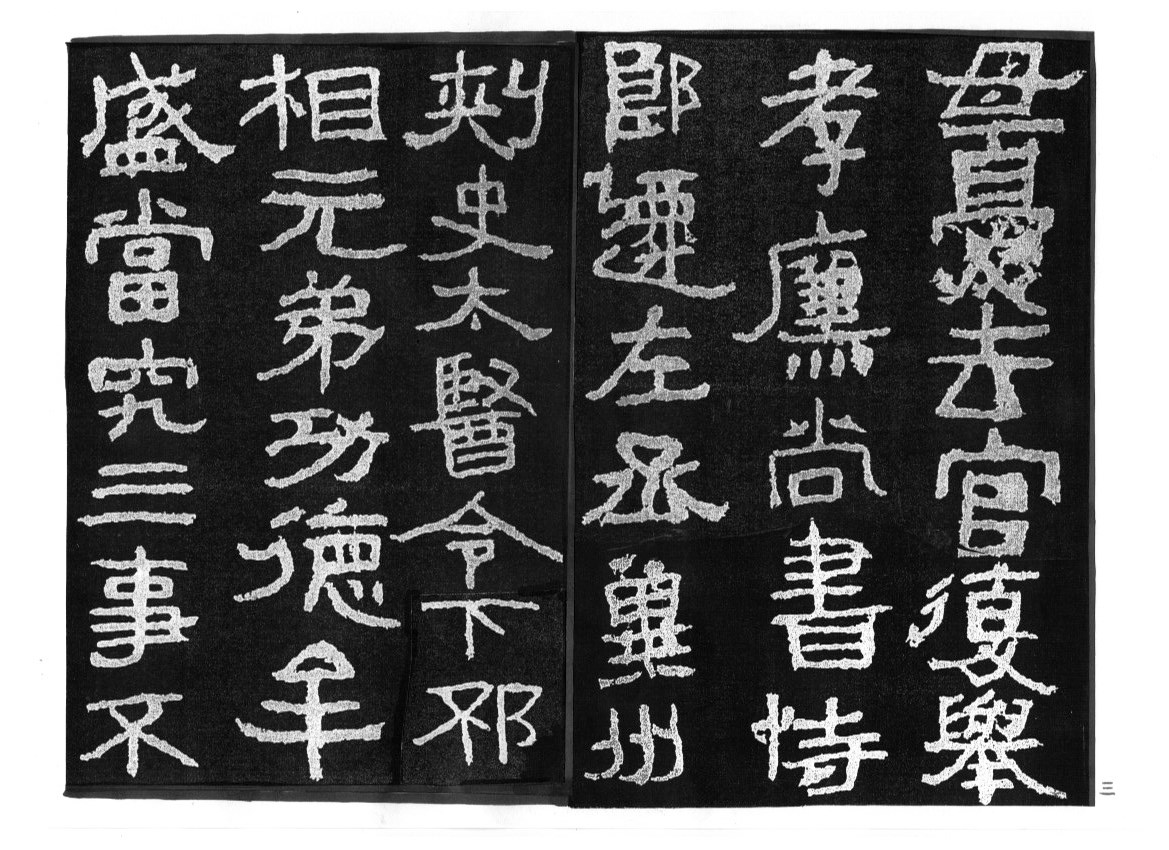 母憂去官復舉
孝廉尚書侍
郎遷左丞冀州
刺史太醫令下邳
相元弟功德牟
盛當究三事不
三